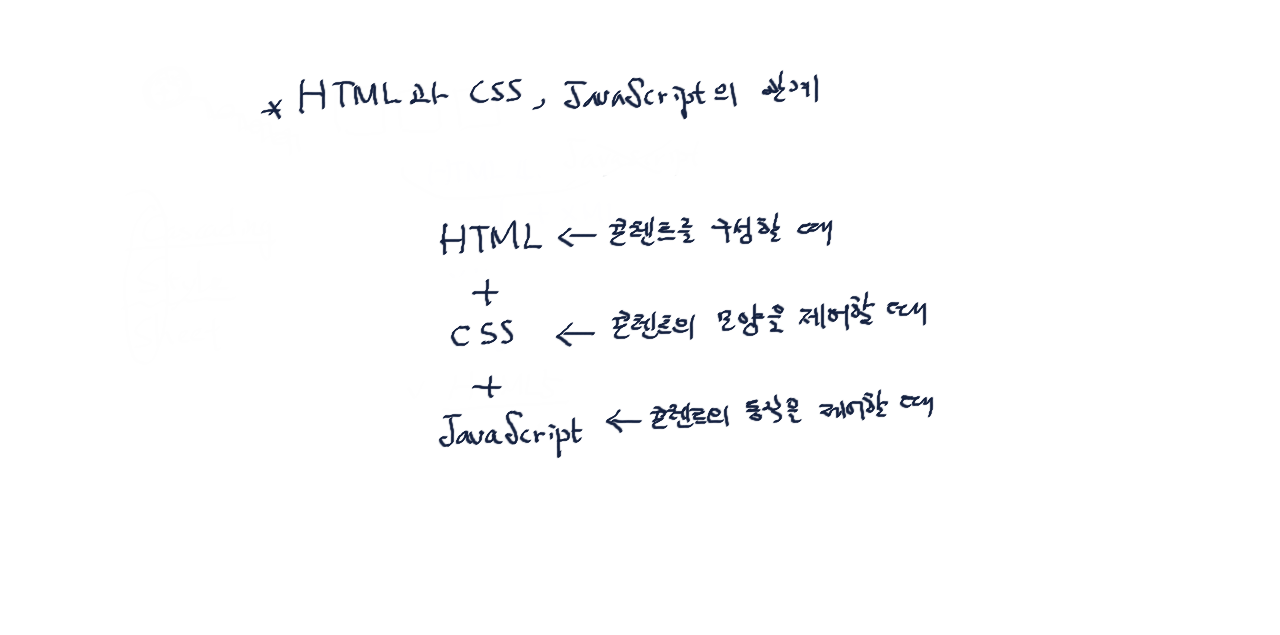 * HTML과 CSS, JavaScript의 관계
HTML ← 콘텐트를 구성할 때
+
CSS ← 콘텐트의 모양을 제어할 때
+
JavaScript ← 콘텐트의 동작을 제어할 때